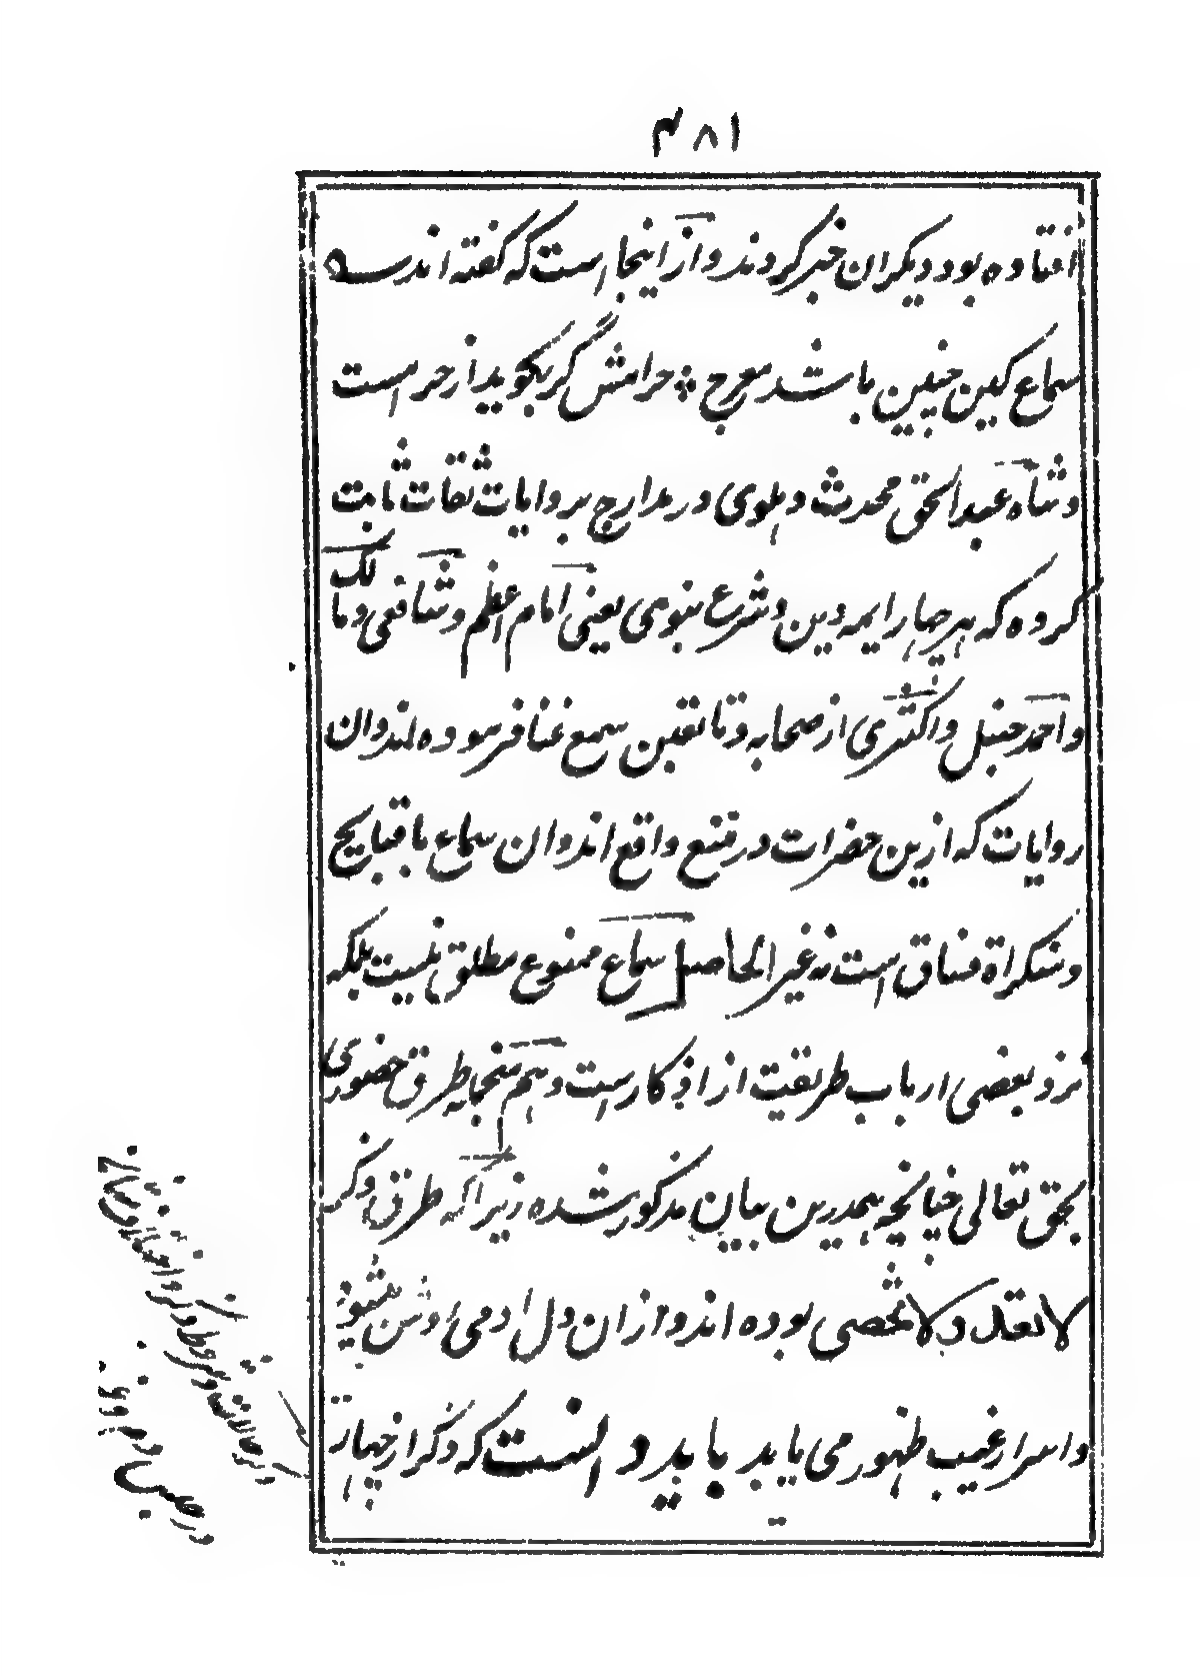 ۴۸۱
افتاده بود دیکران خبر کردند و از اینجا است که کفته اند
سماع کین چنین باشد معرج * حرامش گر بکوید از حر است
و شاه عبدالحق محدث دهلوی در مدارج بروایات ثقات ثابت
کرده که هر چهار ایمه دین و شرع نبوی یعنی امام اعظم و شافعی و مالک
و احمد حنبل و اکثری از صحابه و تابعین سمع غنا فرموده اند و ان
روایات که ازین حضرات در منع واقع اند و ان سماع با قبایح
و منکراة فساق است نه غیر الحاصل سماع ممنوع مطلق نیست بلکه
نزد بعضی ارباب طریقت از اذکار است و هم منجمله طرق حضوری
بحق تعالی چنانچه بهمدرین بیان مذکور شده زیرا که طرق ذکر
لا تعد و لا تحصی بوده اند و ازان دل ادمی روشن میشود
و اسرار غیب ظهور می یابد باید دانست که ذکر از چهار
ذکر حالات و شروط ذکر و
در حبس دم و